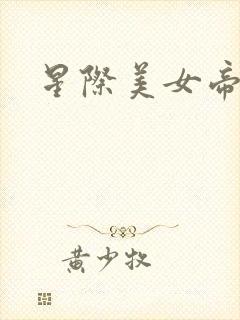 星際美女帝
黃少牧